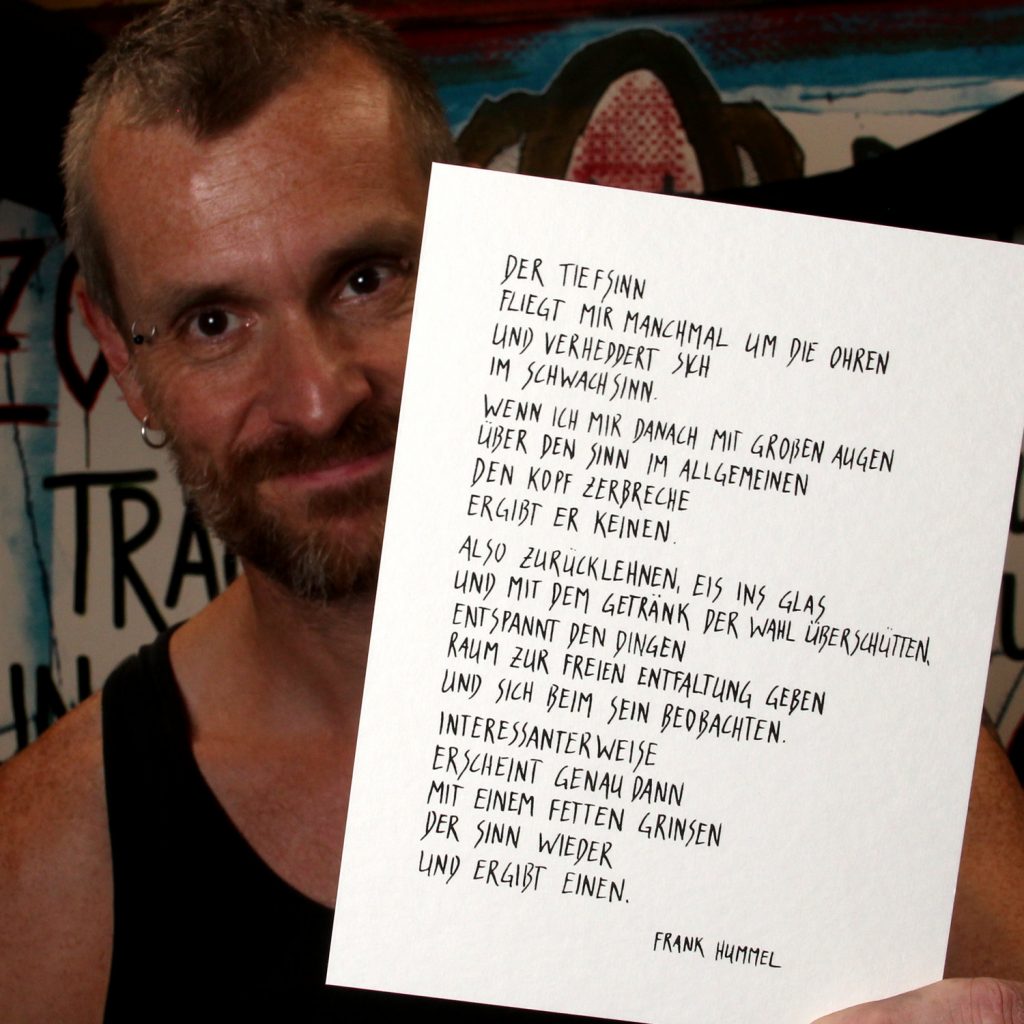 DER TIEFSINN
FLIEGT MIR MANCHMAL UM DIE OHREN
UND VERHEDDERT SICH
IM SCHWACHSINN.
WENN ICH MIR DANACH MIT GROßEN AUGEN
ÜBER DEN SINN IM ALLGEMEINEN
DEN KOPF ZERBRECHE
ERGIBT ER KEINEN.
ALSO ZURÜCKLEHNEN, EIS INS GLAS
UND MIT DEM GETRÄNK DER WAHL ÜBERSCHÜTTEN,
ENTSPANNT DEN DINGEN
RAUM ZUR FREIEN ENTFALTUNG GEBEN
UND SICH BEIM SEIN BEOBACHTEN.
INTERESSANTERWEISE
ERSCHEINT GENAU DANN
MIT EINEM FETTEN GRINSEN
DER SINN WIEDER
UND ERGIBT EINEN.
FRANK HUMMEL